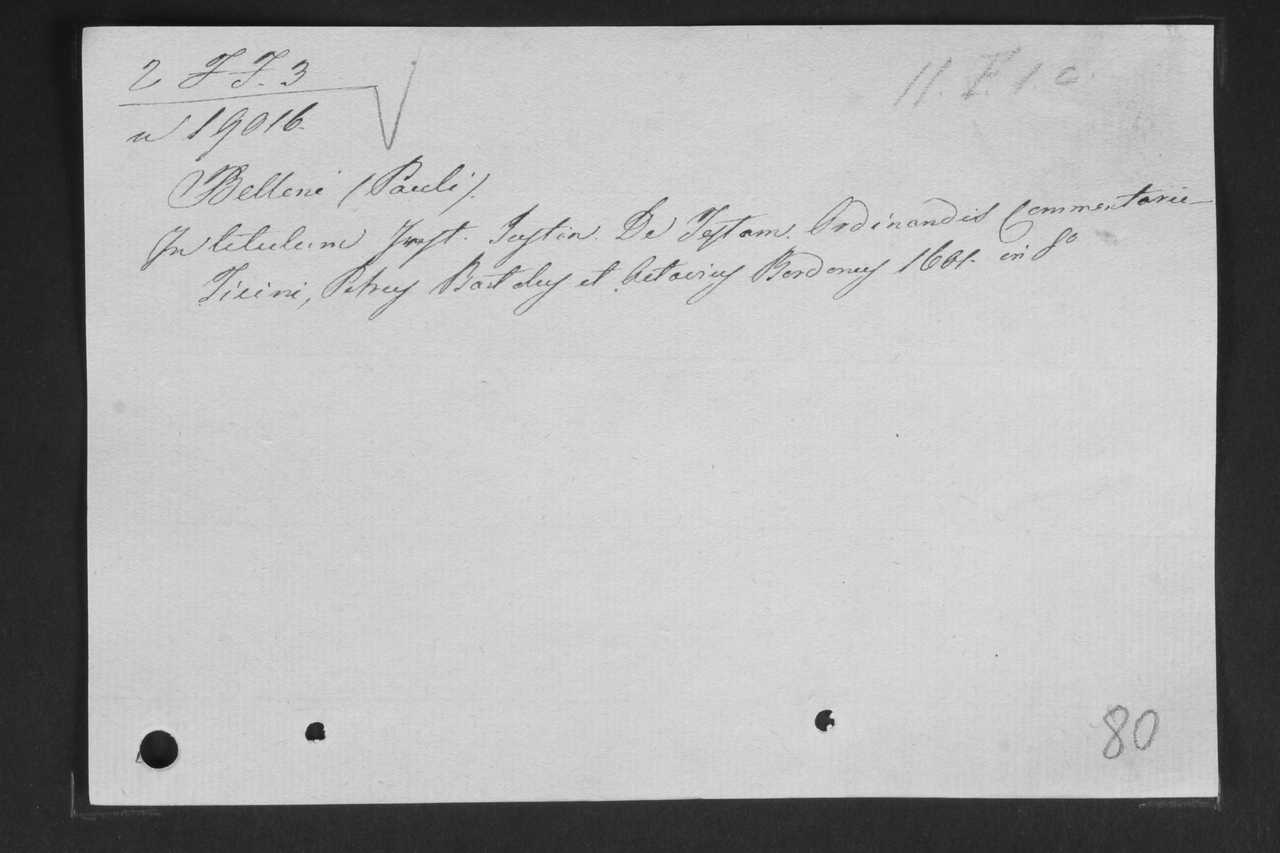 2 F. F. 3
11. F. 1 c.
n 19016.
Belloni (Pauli).
In titulum Inst. Justin. De Testam. Ordinandis Commentarie
Ticini, Petrus et Octavius Bordonus 1661. in 8o
80